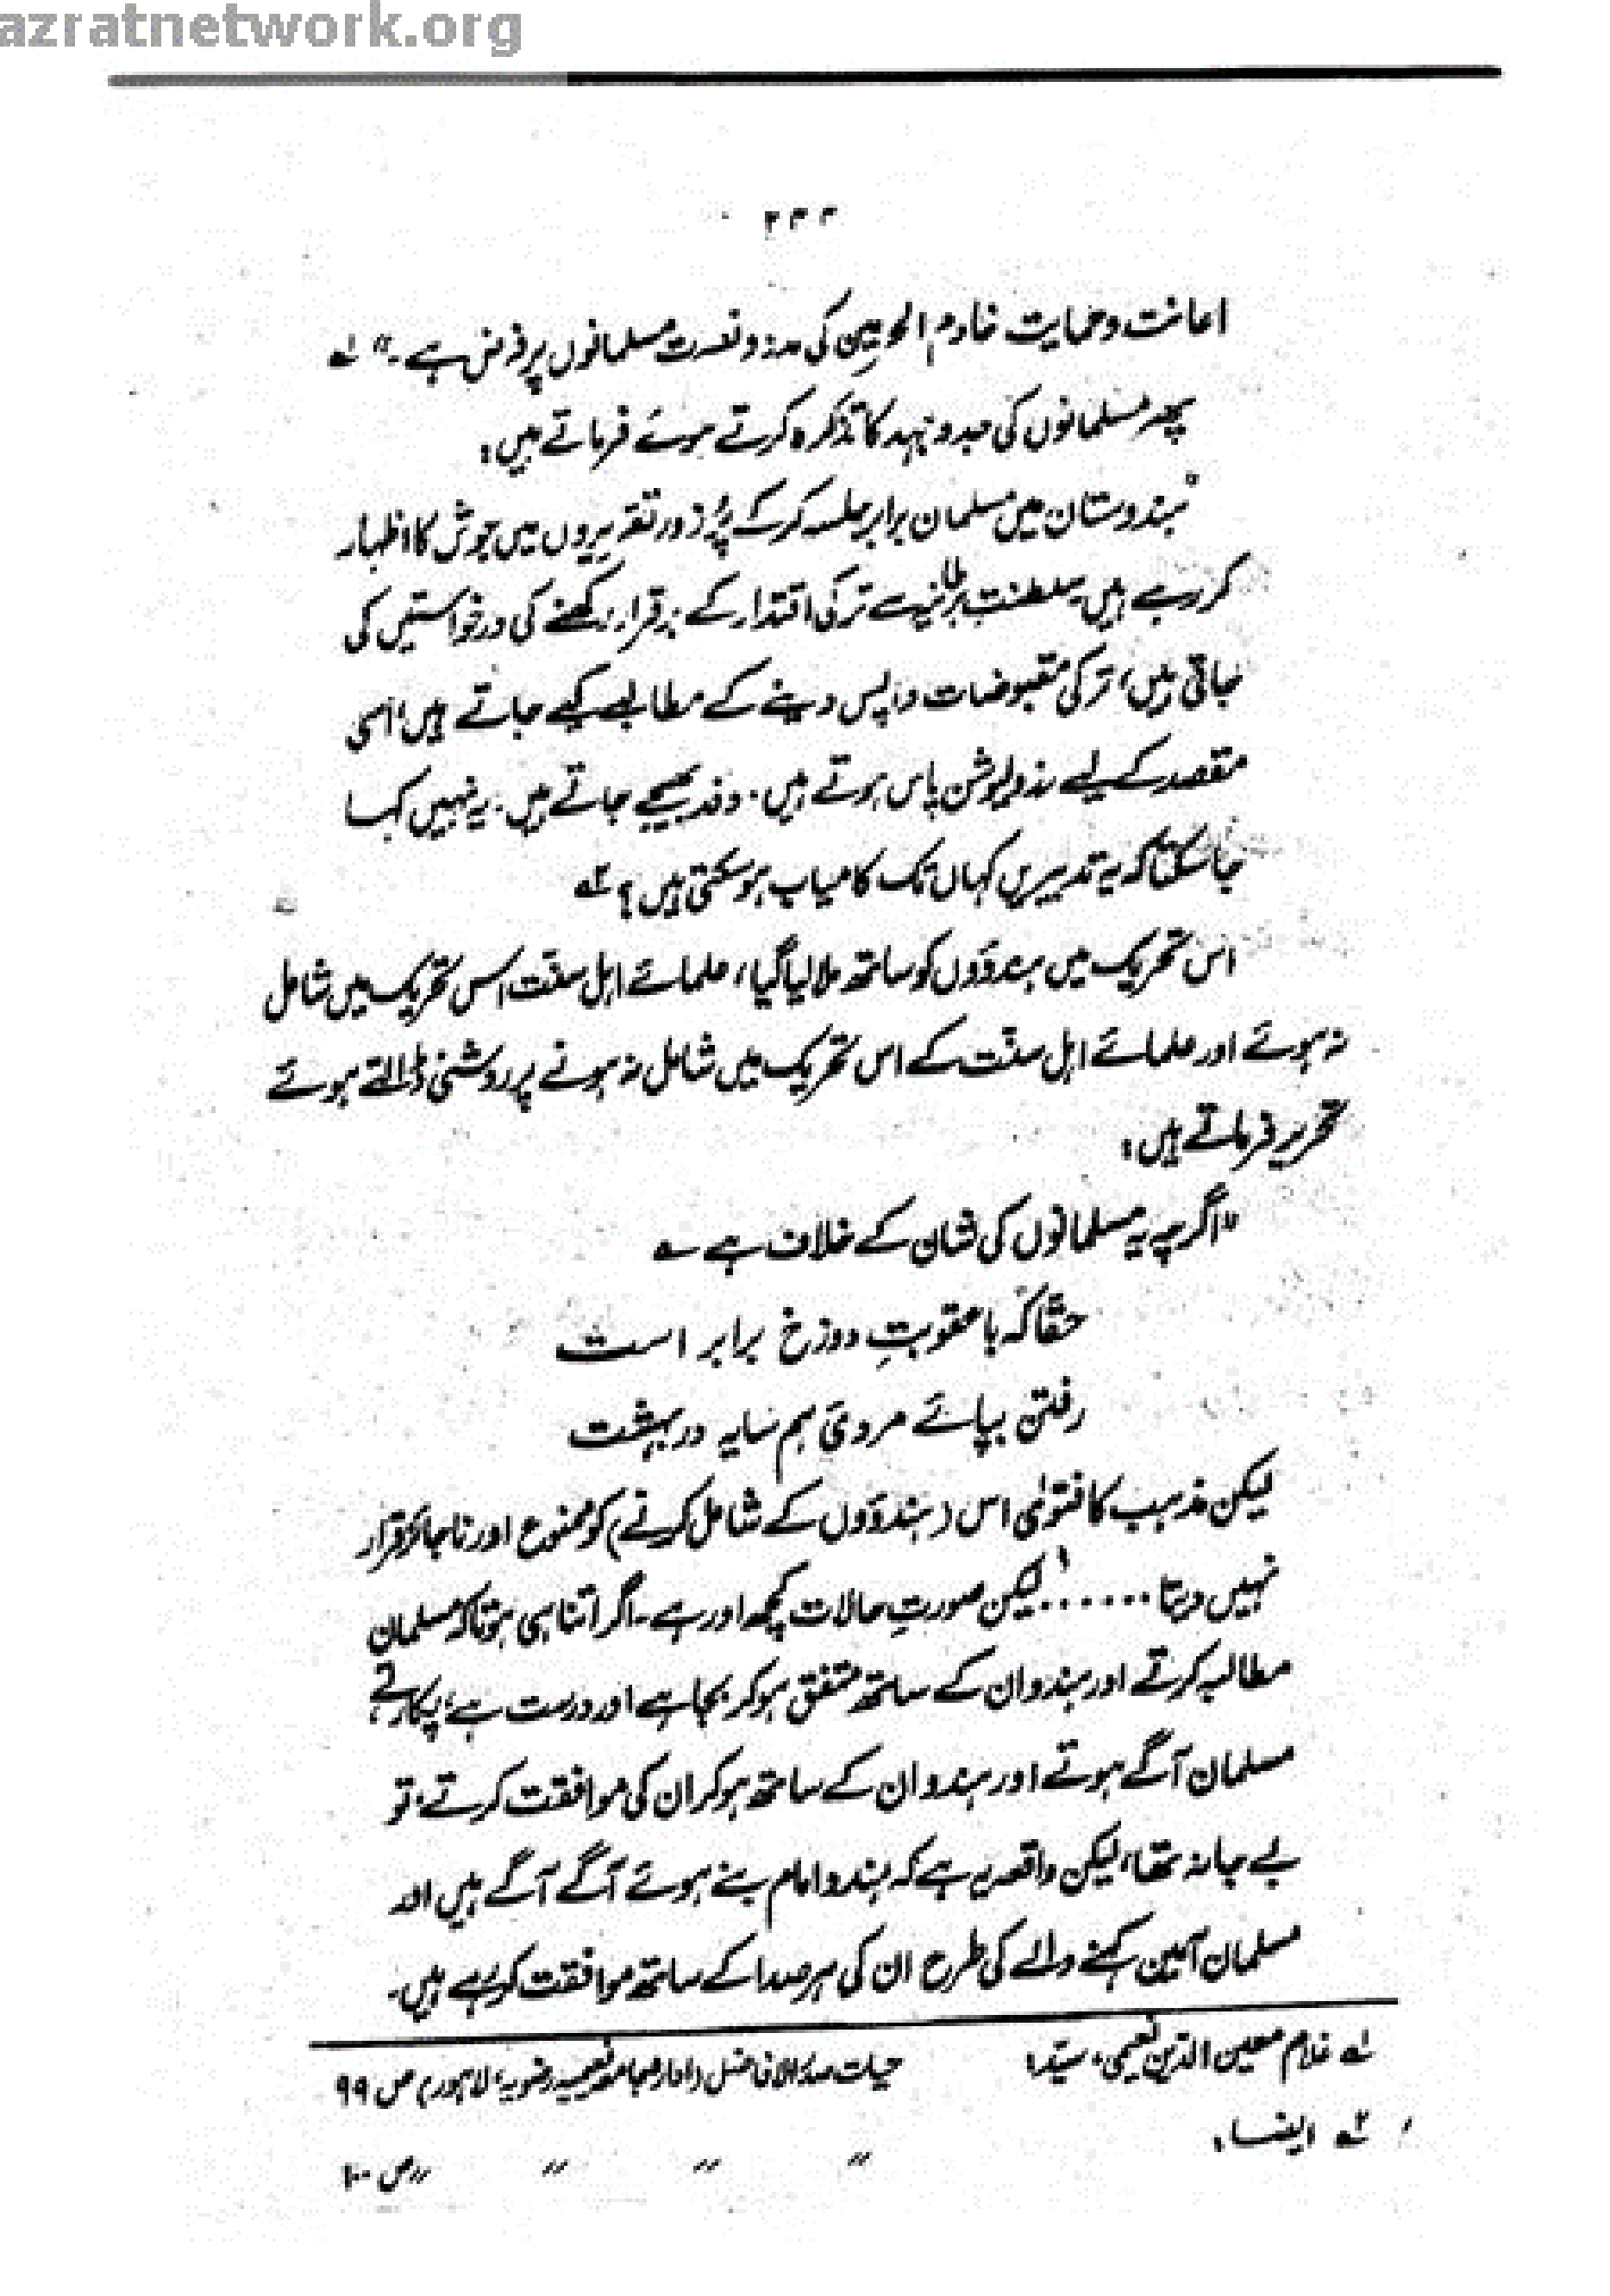 azratnetwork.org
۲۳۳
اعانت و حمایت خادم الحرمین کی مدد و نصرت مسلمانوں پر فرض ہے۔" لہ
پھر مسلمانوں کی جدوجہد کا تذکرہ کرتے ہوئے فرماتے ہیں:
"ہندوستان میں مسلمان برابر جلسہ کرکے پُر زور تقریروں میں جوش کا اظہار
کر رہے ہیں۔ سلطنتِ برطانیہ سے ترکی اقتدار کے برقرار رکھنے کی درخواستیں کی
جاتی ہیں، ترکی مقبوضات واپس دینے کے مطالبے کیے جاتے ہیں، اسی
مقصد کے لیے رزولیوشن پاس ہوتے ہیں۔ وفد بھیجے جاتے ہیں۔ یہ نہیں کہا
جا سکتا کہ یہ تدبیریں کہاں تک کامیاب ہو سکتی ہیں؟ ۲ہ
اس تحریک میں ہندوؤں کو ساتھ ملا لیا گیا، علمائے اہل سنّت اس تحریک میں شامل
نہ ہوئے اور علمائے اہل سنّت کے اس تحریک میں شامل نہ ہونے پر روشنی ڈالتے ہوئے
تحریر فرماتے ہیں:
"اگرچہ یہ مسلمانوں کی شان کے خلاف ہے ؎
حقّا کہ با عقوبتِ دوزخ برابر است
رفتن بپائے مردیٔ ہم سایہ در بہشت
لیکن مذہب کا فتویٰ اس (ہندوؤں کے شامل کرنے) کو ممنوع اور ناجائز قرار
نہیں دیتا ...... لیکن صورتِ حالات کچھ اور ہے۔ اگر اتنا ہی ہوتا کہ مسلمان
مطالبہ کرتے اور ہندو ان کے ساتھ متفق ہو کر بجا ہے اور درست ہے، پکارتے
مسلمان آگے ہوتے اور ہندو ان کے ساتھ ہو کر ان کی موافقت کرتے، تو
بے جا نہ تھا، لیکن واقعہ یہ ہے کہ ہندو امام بنے ہوئے آگے آگے ہیں اور
مسلمان آمین کہنے والے کی طرح ان کی ہر صدا کے ساتھ موافقت کر رہے ہیں۔
لہ غلام معین الدین نعیمی، سیّد: حیات صدر الافاضل (ادارہ جامعہ نعیمیہ رضویہ، لاہور) ص ۹۹
۲ہ ایضاً: " " " " ص ۱۰۰